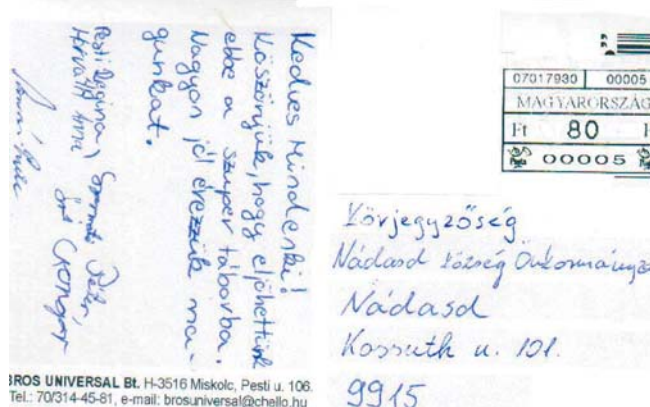 Kedves Mindenki!
Köszönjük, hogy eljöhettünk
ebbe a szuper táborba.
Nagyon jól érezzük ma-
gunkat.
Pesti Regina,
Horváth Anna
Péter,
Csongor
BROS UNIVERSAL Bt. H-3516 Miskolc, Pesti u. 106.
Tel.: 70/314-45-81, e-mail: brosuniversal@chello.hu
07017930 00005
MAGYARORSZÁG
Ft 80 F
00005
Körjegyzőség
Nádasd Község Önkormányza
Nádasd
Kossuth u. 101.
9915